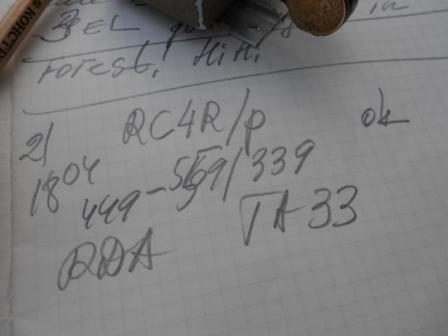 BEL
Forest! HiHi
2) RC4R/p ok
18 04 449 - 559/339
RDA TA-33